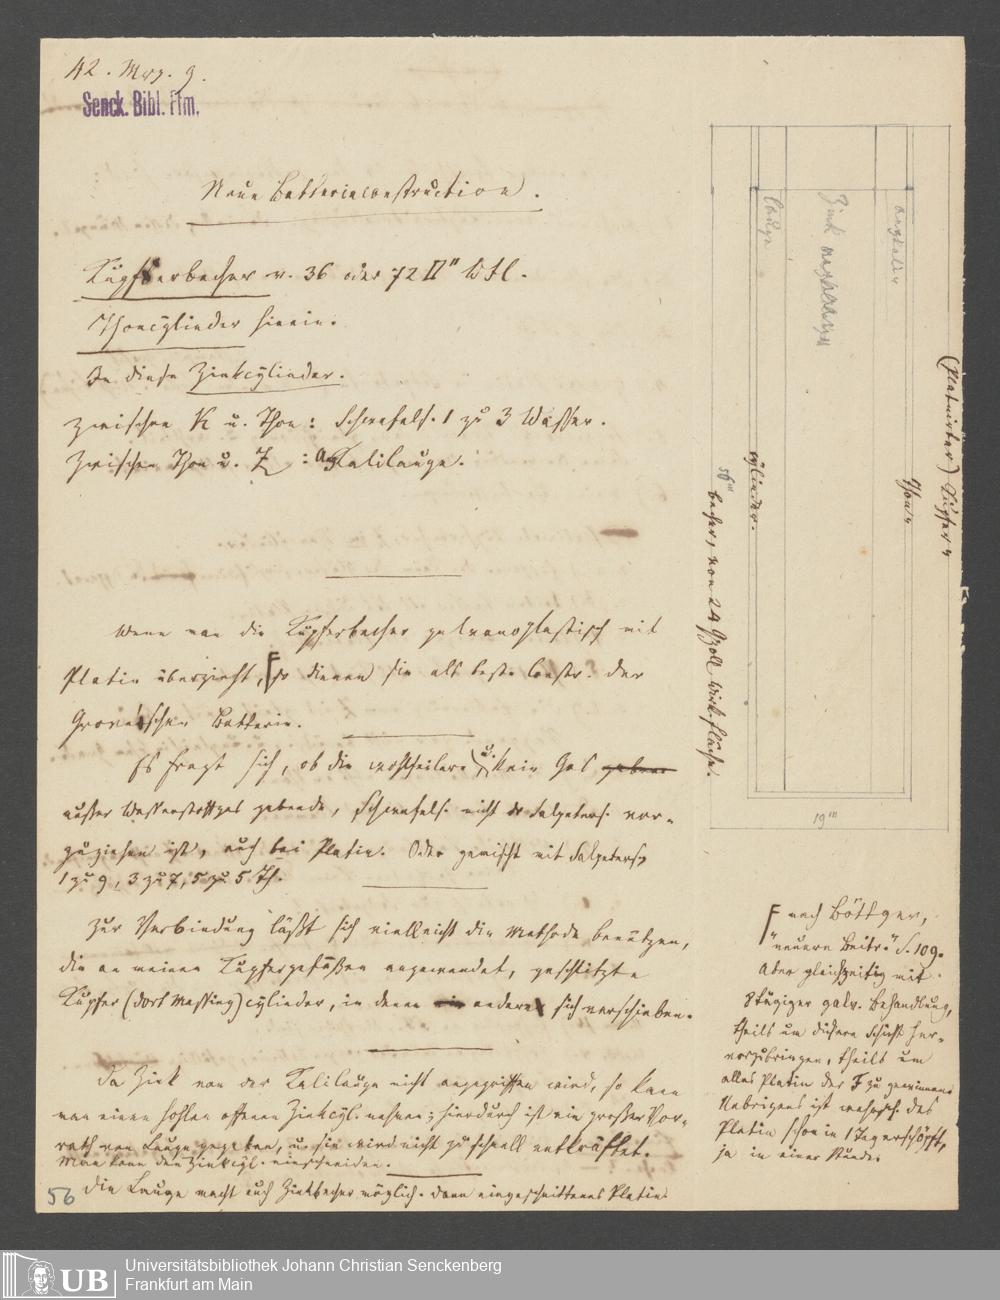 42. Mrz. 9.
Senck. Bibl. Ffm.
Neue Batterieconstruction.
Kupferbecher v. 36 oder 72 □" Wfl.
Thoncylinder hinein.
In diese Zinkcylinder.
Zwischen K u. Thon: Schwefels. 1 zu 3 Wasser.
Zwischen Thon u. Z: Kalilauge.
Wenn man die Kupferbecher galvanoplastisch mit
Platin überzieht, so dienen sie als beste Constr. der
Grove'schen Batterie.
Es fragt sich, ob die wohlfeilere u. kein Gas
außer Wasserstoffgas gebende, Schwefels. nicht der Salpeters. vor-
zuziehen ist, auch bei Platin. Oder gemischt mit Salpeters.
1 zu 9, 3 zu 7, 5 zu 5 Th.
Zur Verbindung läßt sich vielleicht die Methode benützen,
die an meinen Kupfergefäßen angewendet, geschlitzte
Kupfer (dort Messing) cylinder, in denen andere sich verschieben.
Da Zink von der Kalilauge nicht angegriffen wird, so kann
man einen hohlen offenen Zinkcyl. nehmen; hierdurch ist ein großer Vor-
rath von Lauge gegeben, u. sie wird nicht zu schnell entkräftet.
Man kann den Zinkcyl. einschneiden.
Die Lauge macht auch Zinkbecher möglich. Dann eingeschnittenes Platin.
56
Lauge
Zink
(Platinirter) Kupfer-
Thon-
cylinder.
56'''
becher, von 24 Zoll wirk. Fläche.
19'''
F nach Böttger,
"neuere Beitr." S. 109.
Aber gleichzeitig mit
8tägiger galv. Behandlung,
theils um dickere Schicht her-
vorzubringen, theils um
alles Platin der F zu gewinnen.
Uebrigens ist das
Platin schon in 1 Tag erschöpft,
ja in einer Stunde.
Universitätsbibliothek Johann Christian Senckenberg
Frankfurt am Main
UB